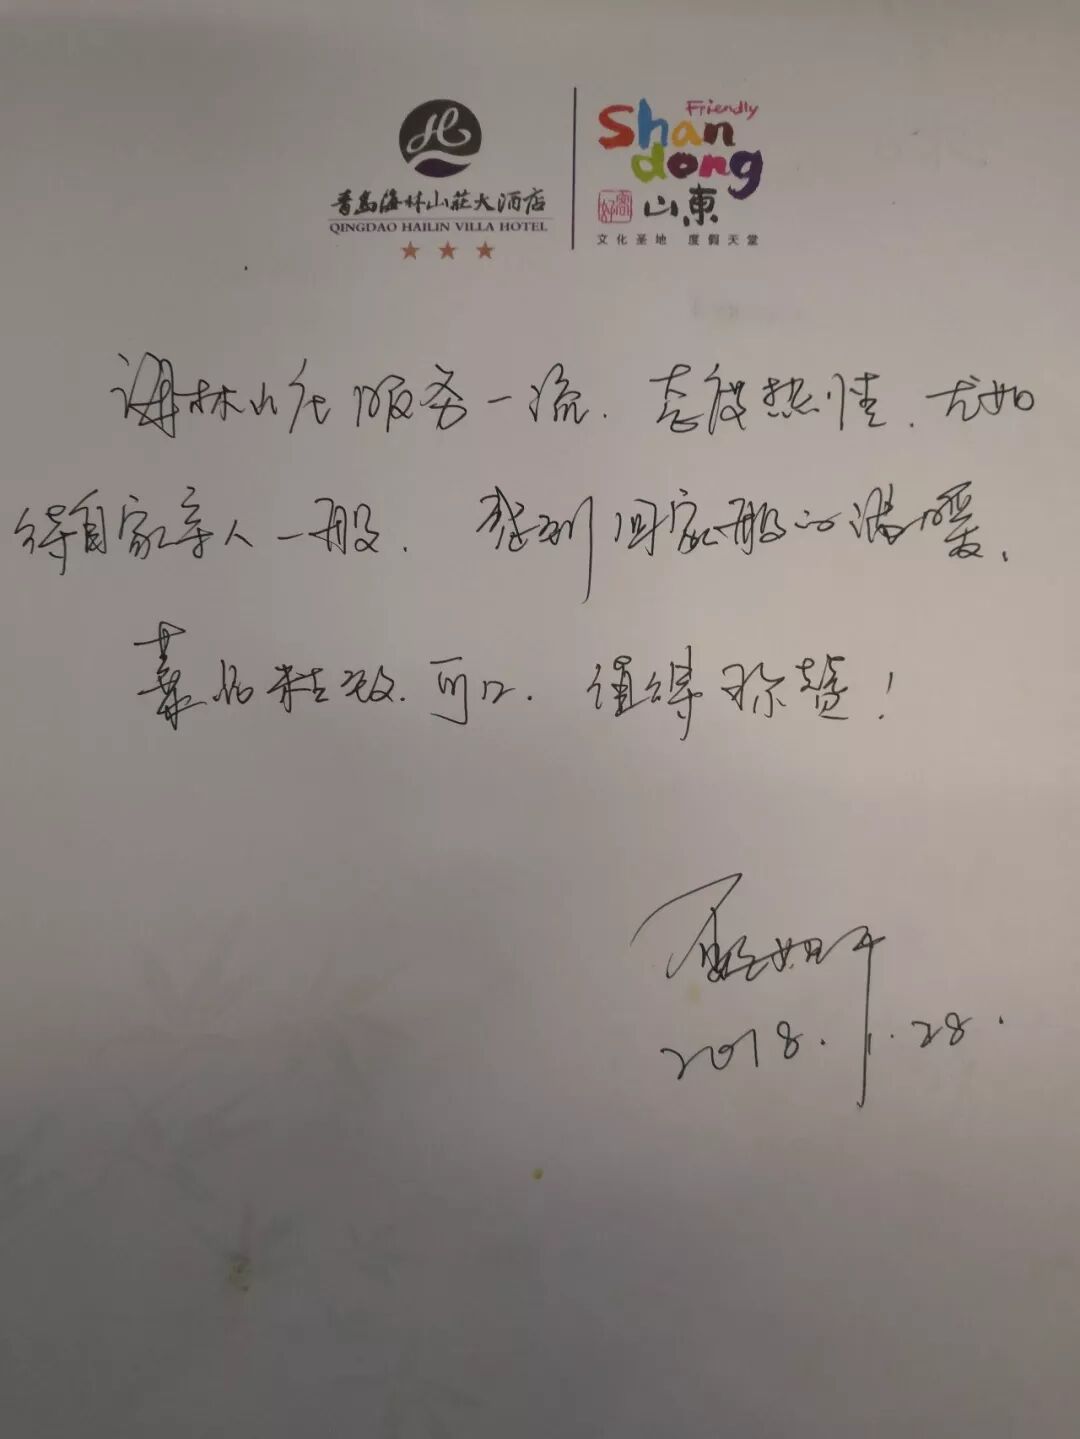 青岛海林山庄大酒店
QINGDAO HAILIN VILLA HOTEL
Friendly
Shan
dong
好客
山東
文化圣地 度假天堂
海林山庄服务一流.态度热情.尤如
待自家亲人一般.感到回家般的温暖.
菜品精致.可口.值得称赞!
2018.1.28.